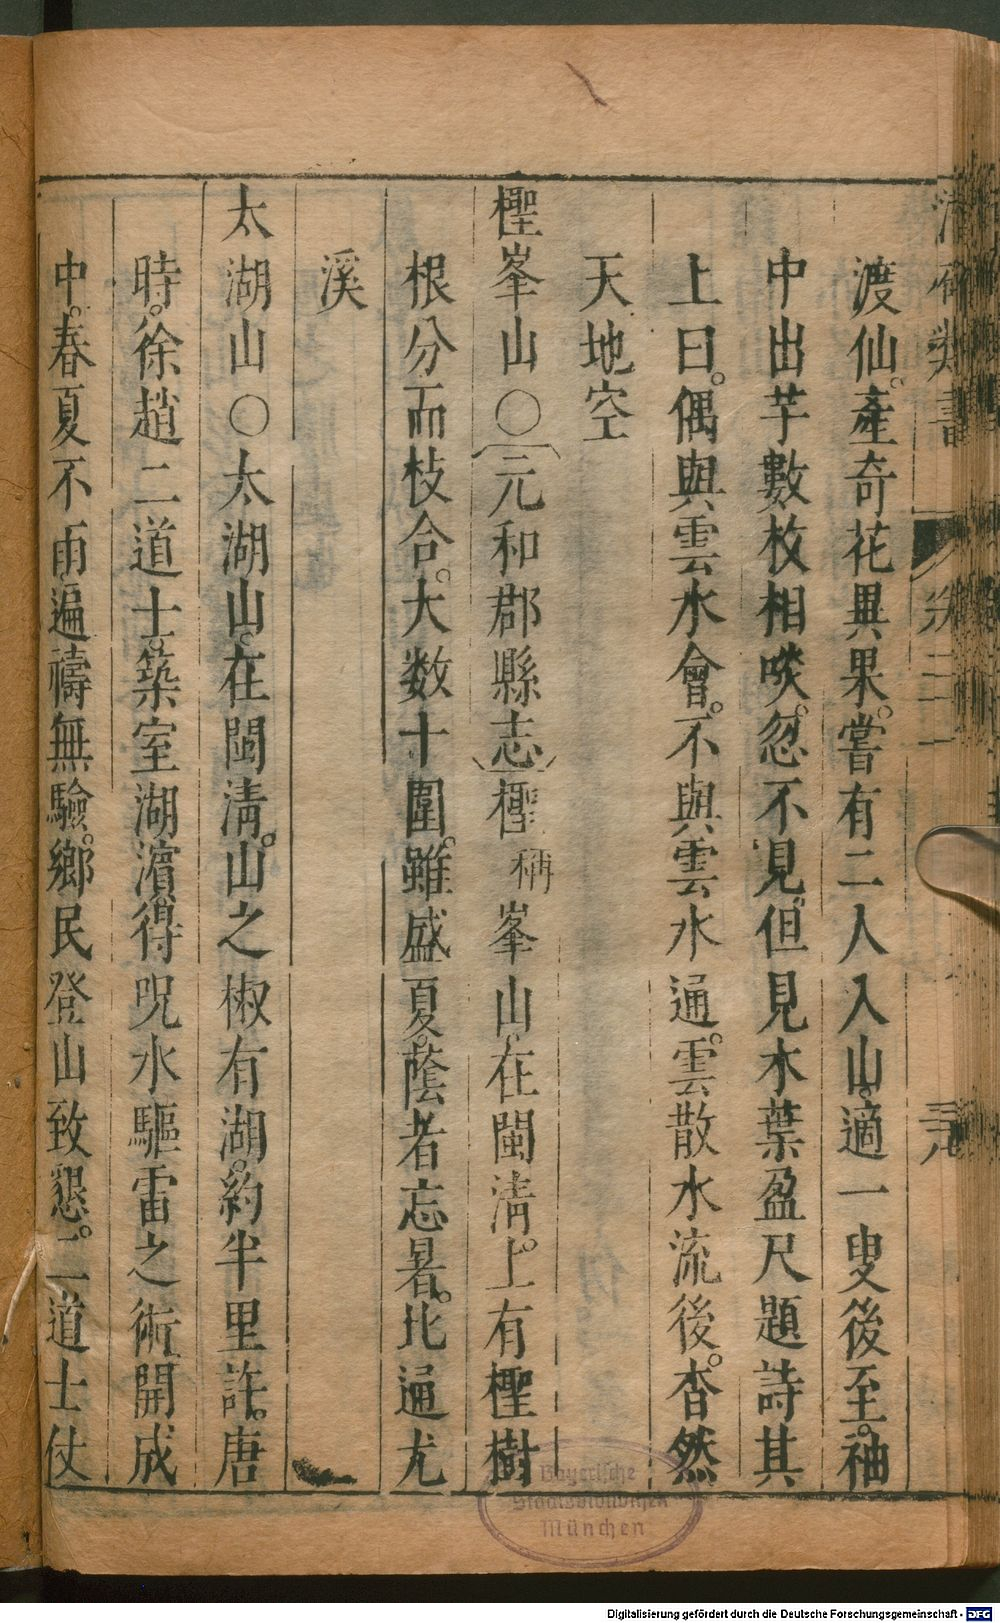 渡仙。產奇花異果。嘗有二人入山。適一叟後至。袖
中出芋數枚相啖。忽不見。但見木葉盈尺題詩其
上曰。偶與雲水會。不與雲水通。雲散水流後。杳然
天地空
檉峯山○元和郡縣志檉稱峯山。在閩清。上有檉樹
根分而枝合。大数十圍。雖盛夏。蔭者忘暑。北通尤
溪
太湖山○太湖山。在閩清。山之椒有湖。約半里許。唐
時。徐趙二道士。築室湖濵。得呪水驅雷之術。開成
中。春夏不雨。遍禱無驗。鄉民登山致懇。二道士仗
Bayerische
Staatsbibliothek
München
Digitalisierung gefördert durch die Deutsche Forschungsgemeinschaft - DFG